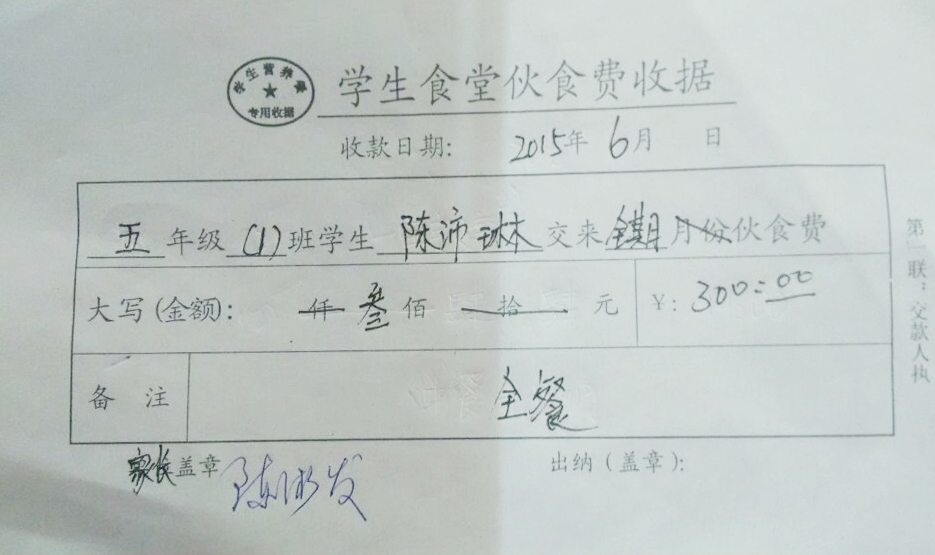 学生营养餐
专用收据
学生食堂伙食费收据
收款日期: 2015年 6月 日
五 年级 (1) 班学生 陈沛琳 交来 全期 月份伙食费
大写(金额): 仟 叁 佰 拾 元 ¥: 300=00
备 注 全餐
家长盖章 出纳(盖章):
第一联:交款人执